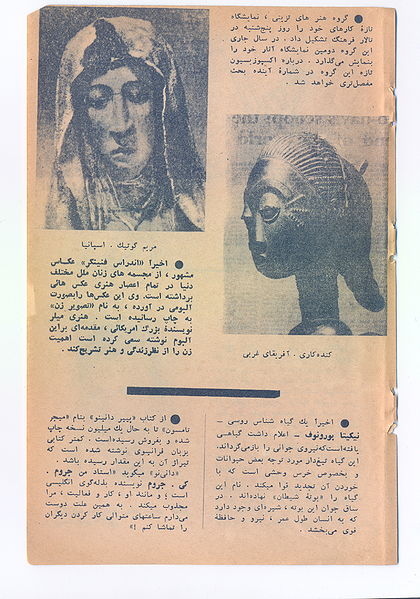 ● گروه هنر های تزئینی ، نمایشگاه
تازهٔ کارهای خود را روز پنجشنبه در
تالار فرهنگ تشکیل داد . در سال جاری
این گروه دومین نمایشگاه آثار خود را
بنمایش می‌گذارد . درباره اکسپوزیسیون
تازه این گروه در شمارهٔ آینده بحث
مفصل‌تری خواهد شد .
مریم گوتیك . اسپانیا
کنده‌کاری . آفریقای غربی
● اخیراً «اندراس فنینگر» عکاس
مشهور ، از مجسمه های زنان ملل مختلف
دنیا در تمام اعصار هنری عکس هائی
برداشته است. وی این عکس‌ها رابصورت
آلبومی در آورده ، به نام «تصویر زن»
به چاپ رسانیده است . هنری میلر
نویسندهٔ بزرگ امریکائی ، مقدمه‌ای براین
آلبوم نوشته سعی کرده است اهمیت
زن را از نظرزندگی و هنر تشریح‌کند .
● از کتاب «پییر دانینو» بنام «میجر
تامسون» تا به حال یك میلیون نسخه چاپ
شده و بفروش رسیده‌است . کمتر کتابی
بزبان فرانسوی نوشته شده است که
تیراژ آن به این مقدار رسیده باشد .
«دانی‌نو» میگوید «استاد من جروم .
کی . جروم نویسنده بذله‌گوی انگلیسی
است ؛ و مانند او ، کار و فعالیت ، مرا
مجذوب میکند . به همین علت دوست
می‌دارم ساعتهای متوالی کار کردن دیگران
را تماشا کنم !»
● اخیراً یك گیاه شناس روسی ــ
نیکیتا پورونوف ــ اعلام داشت گیاهی
یافته‌است‌که‌نیروی جوانی را بازمی‌گرداند.
این گیاه تیغ‌دار مورد توجه بعض حیوانات
و بخصوص خرس وحشی است که با
خوردن آن تجدید قوا میکند . نام این
گیاه را «بوتهٔ شیطان» نهاده‌اند . در
ساق جوان این بوته ، شیره‌ای وجود دارد
که به انسان طول عمر ، نیرو و حافظهٔ
قوی می‌بخشد .